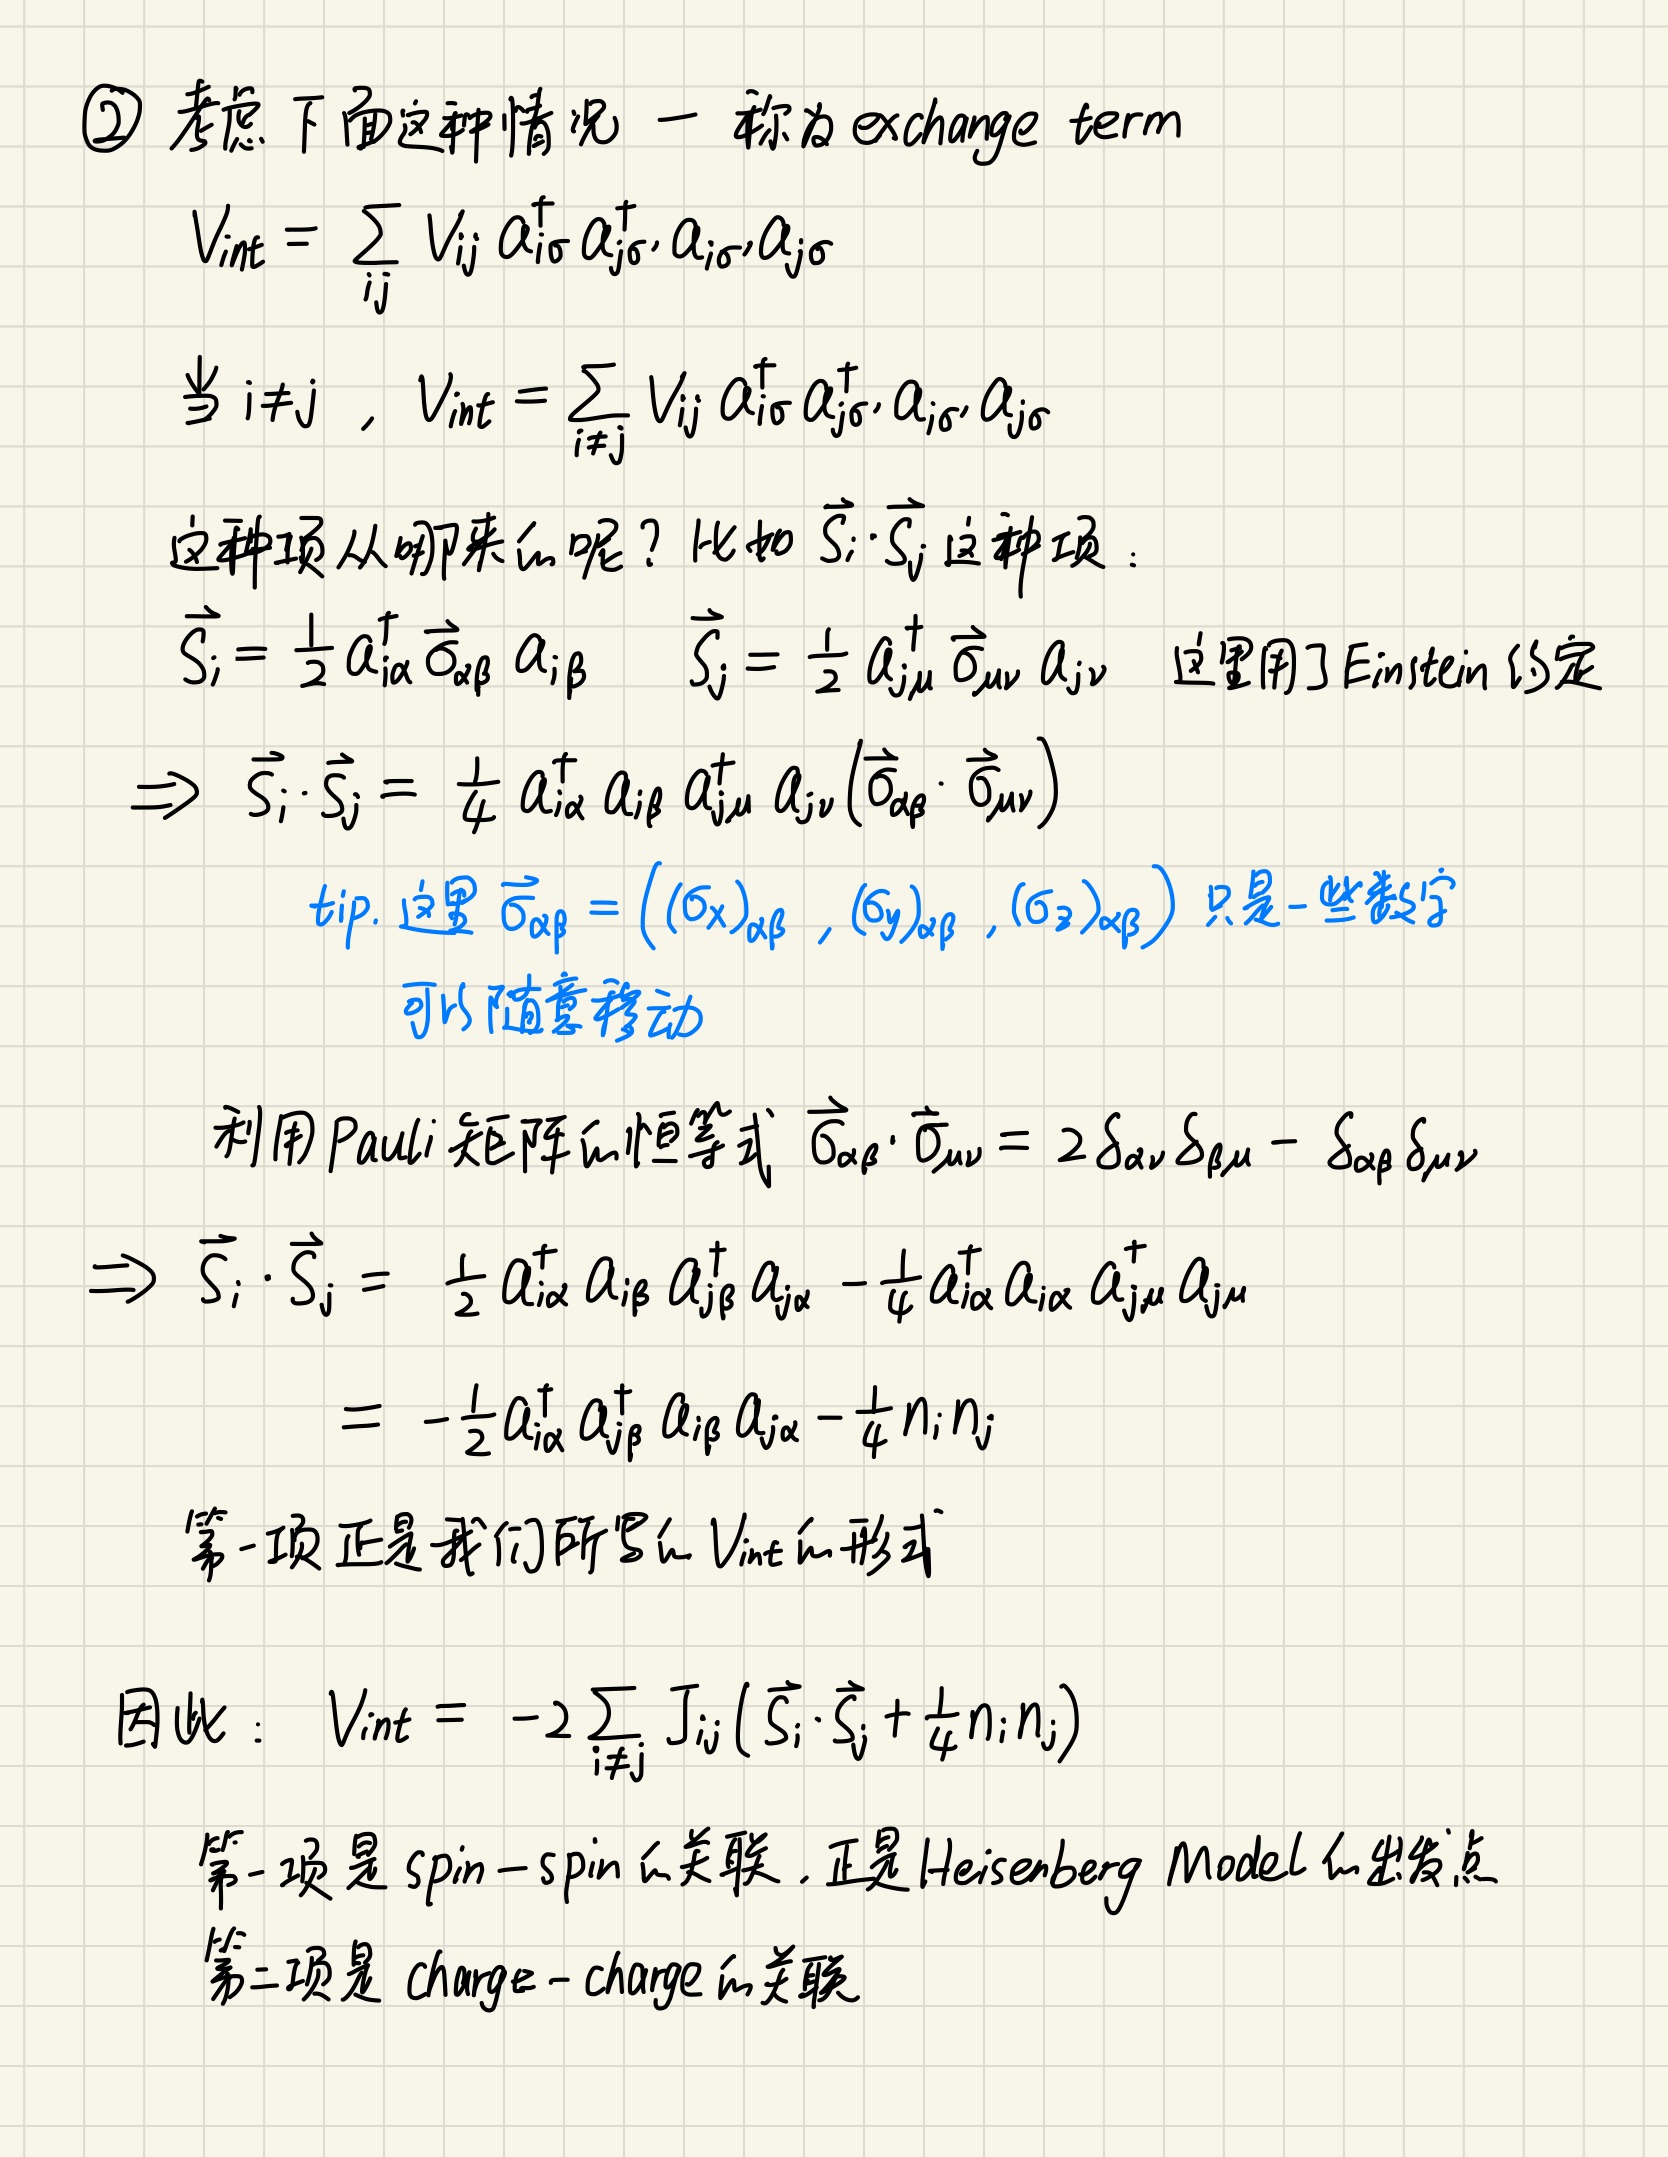 ② 考虑下面这种情况 — 称为 exchange term
V_int = ∑_{ij} V_{ij} a†_{iσ} a†_{jσ'} a_{iσ'} a_{jσ}
当 i≠j , V_int = ∑_{i≠j} V_{ij} a†_{iσ} a†_{jσ'} a_{iσ'} a_{jσ}
这种项从哪来的呢? 比如 S⃗_i·S⃗_j 这种项:
S⃗_i = 1/2 a†_{iα} σ⃗_{αβ} a_{iβ} S⃗_j = 1/2 a†_{jμ} σ⃗_{μν} a_{jν} 这里用了Einstein约定
⇒ S⃗_i·S⃗_j = 1/4 a†_{iα} a_{iβ} a†_{jμ} a_{jν} (σ⃗_{αβ}·σ⃗_{μν})
tip. 这里 σ⃗_{αβ} = ((σ_x)_{αβ}, (σ_y)_{αβ}, (σ_z)_{αβ}) 只是一些数字
可以随意移动
利用Pauli矩阵的恒等式 σ⃗_{αβ}·σ⃗_{μν} = 2δ_{αν}δ_{βμ} − δ_{αβ}δ_{μν}
⇒ S⃗_i·S⃗_j = 1/2 a†_{iα} a_{iβ} a†_{jβ} a_{jα} − 1/4 a†_{iα} a_{iα} a†_{jμ} a_{jμ}
= −1/2 a†_{iα} a†_{jβ} a_{iβ} a_{jα} − 1/4 n_i n_j
第一项正是我们所写的 V_int 的形式
因此: V_int = −2∑_{i≠j} J_{ij} (S⃗_i·S⃗_j + 1/4 n_i n_j)
第一项是 spin−spin 的关联, 正是Heisenberg Model 的出发点
第二项是 charge−charge 的关联